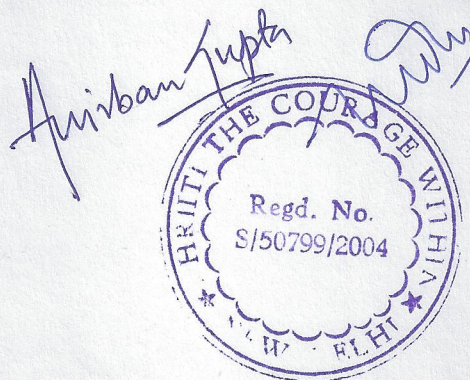 Anirban Gupta
HRIITI THE COURAGE WITHIN
Regd. No.
S/50799/2004